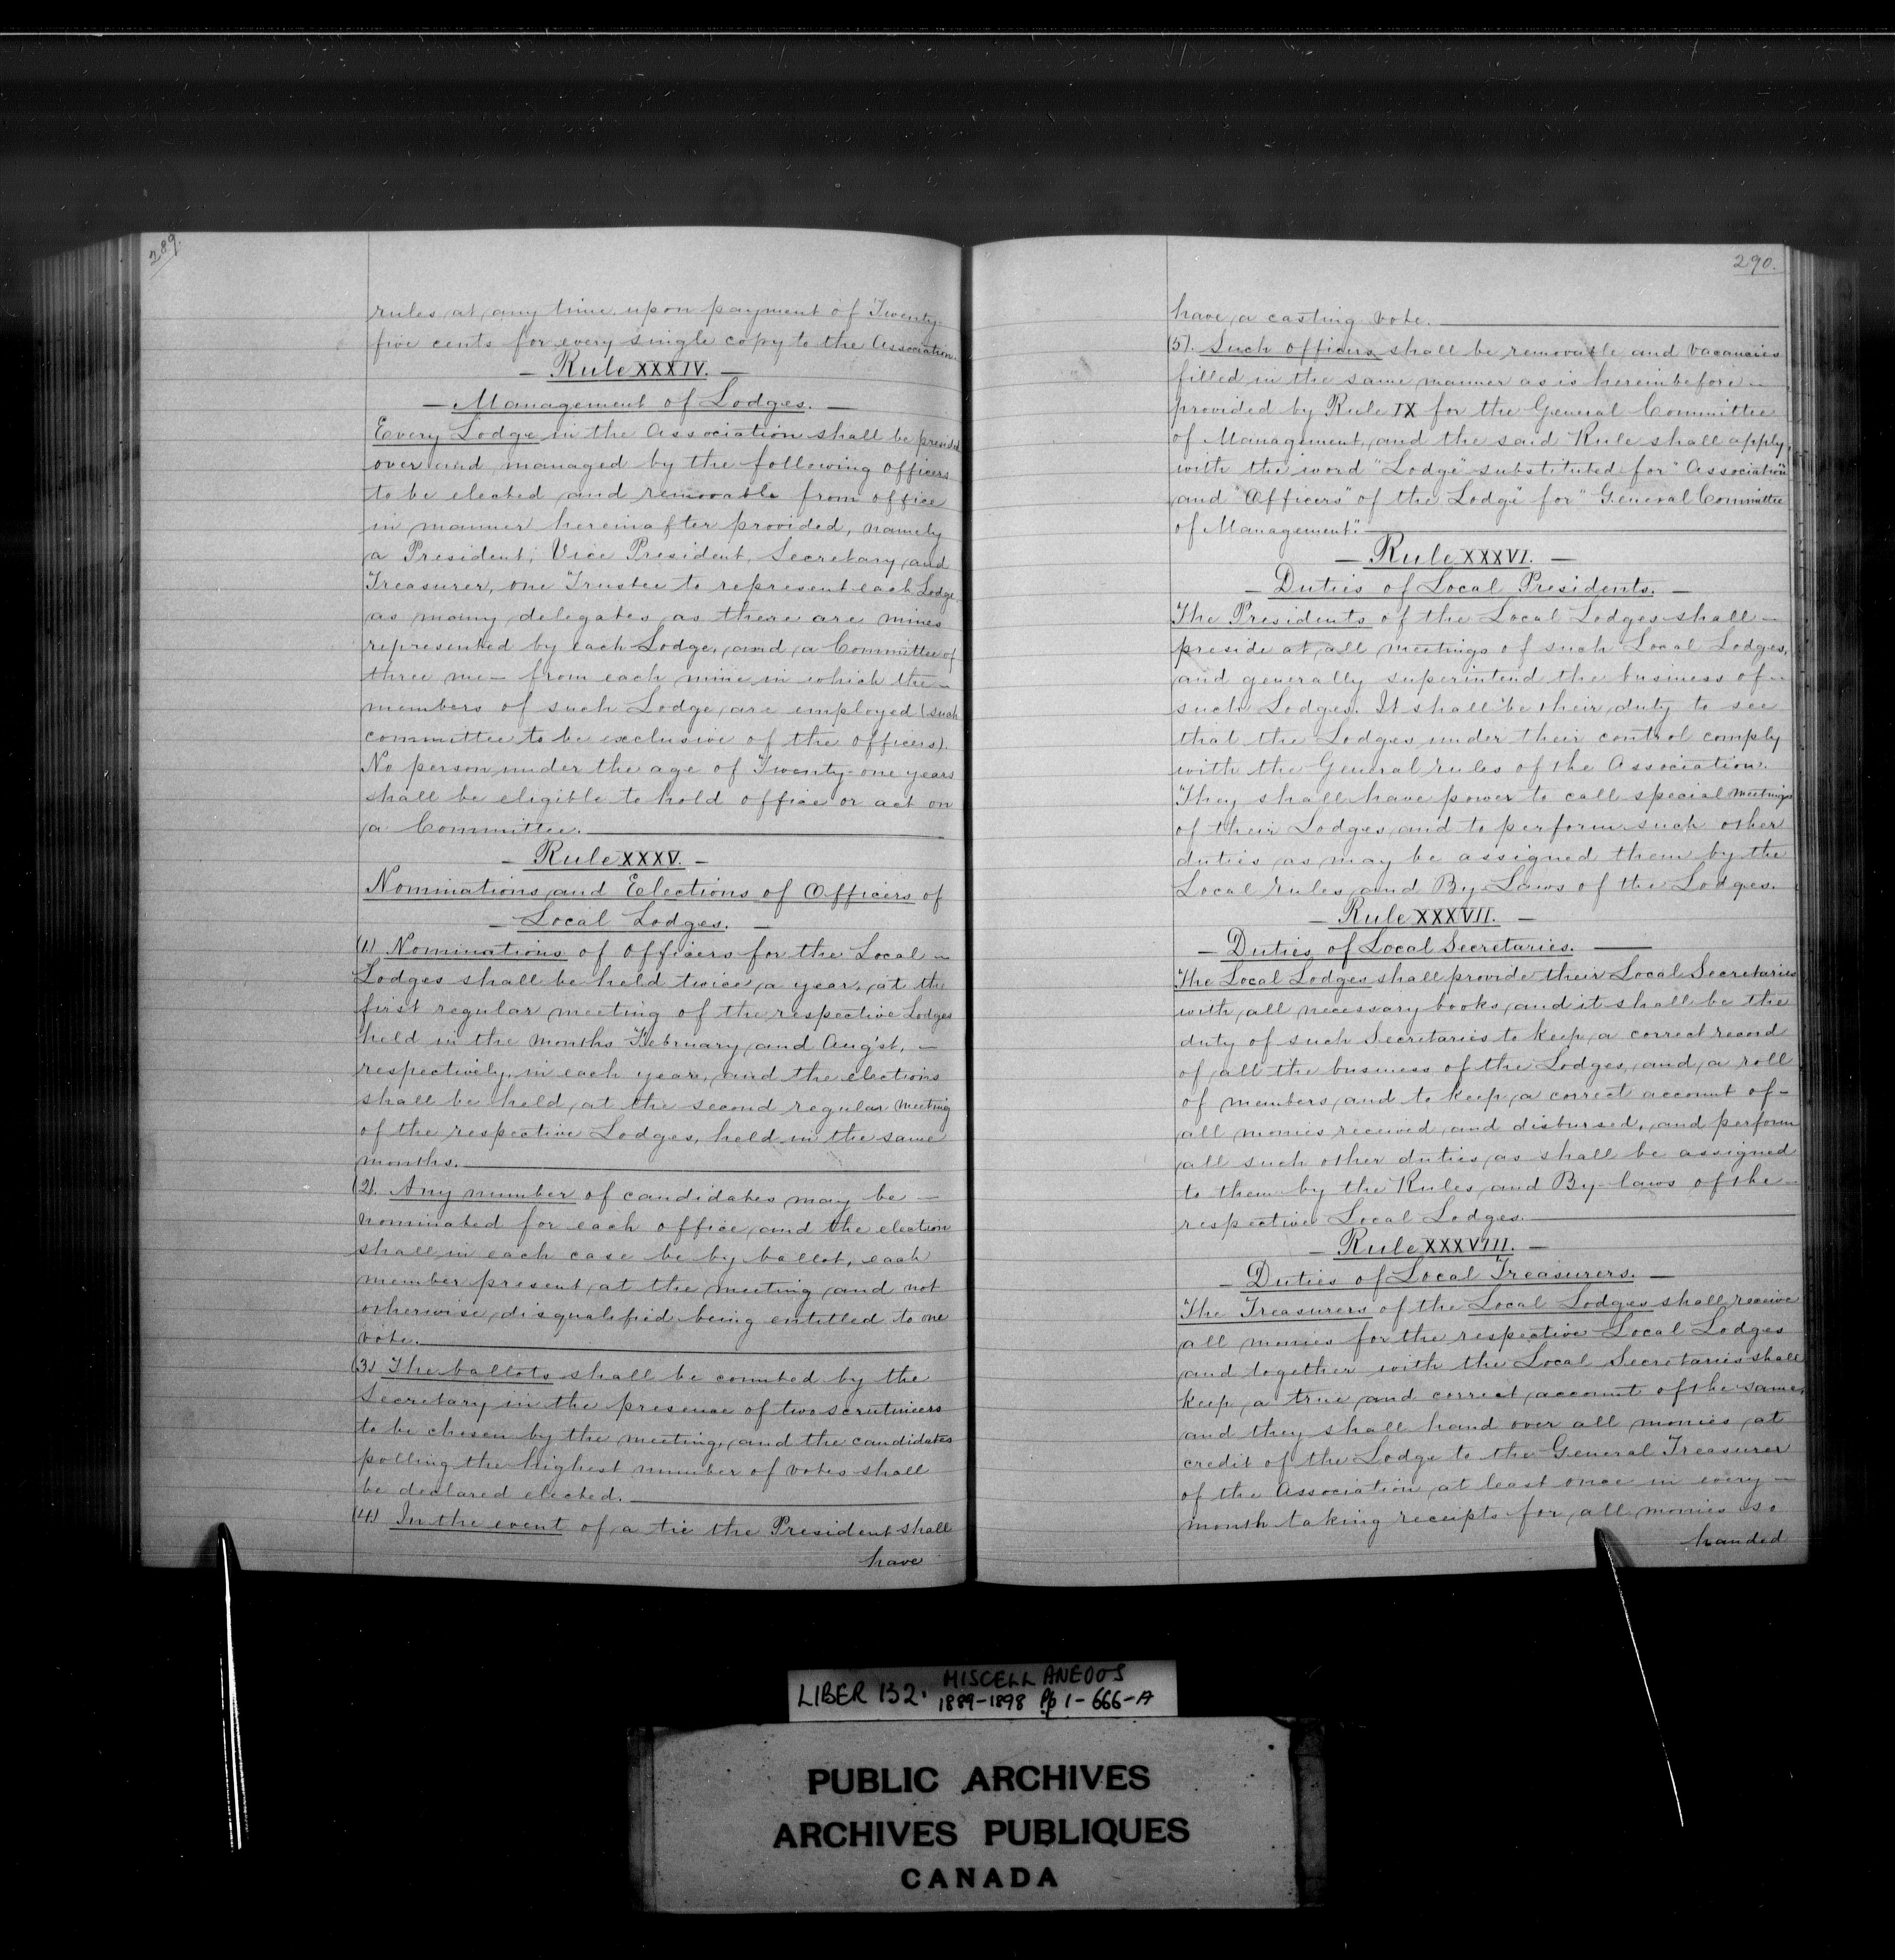 289.
rules at any time upon payment of Twenty
five cents for every single copy to the Association.
— Rule XXXIV. —
— Management of Lodges. —
Every Lodge in the Association shall be presided
over and managed by the following officers
to be elected and removable from office
in manner hereinafter provided, namely
a President, Vice President, Secretary and
Treasurer, one Trustee to represent each Lodge,
as many delegates as there are mines
represented by each Lodge, and a Committee of
three me— from each mine in which the —
members of such Lodge are employed (such
committee to be exclusive of the officers).
No person under the age of Twenty-one years
shall be eligible to hold office or act on
a Committee.
— Rule XXXV. —
Nominations and Elections of Officers of
— Local Lodges. —
(1.) Nominations of Officers for the Local —
Lodges shall be held twice a year, at the
first regular meeting of the respective Lodges
held in the months February and Aug'st, —
respectively, in each year, and the elections
shall be held at the second regular meeting
of the respective Lodges, held in the same
months.
(2). Any number of candidates may be —
nominated for each office and the election
shall in each case be by ballot, each
member present at the meeting and not
otherwise disqualified being entitled to one
vote.
(3.) The ballots shall be counted by the
Secretary in the presence of two scrutineers
to be chosen by the meeting, and the candidates
polling the highest number of votes shall
be declared elected.
(4.) In the event of a tie the President shall
have
290.
have a casting vote.
(5). Such officers shall be removable and vacancies
filled in the same manner as is hereinbefore —
provided by Rule IX for the General Committee
of Management, and the said Rule shall apply,
with the word "Lodge" substituted for "Association"
and "Officers" of the Lodge" for "General Committee
of Management".
— Rule XXXVI. —
— Duties of Local Presidents. —
The Presidents of the Local Lodges shall —
preside at all meetings of such Local Lodges,
and generally superintend the business of —
such Lodges. It shall be their duty to see
that the Lodges under their control comply
with the General rules of the Association.
They shall have power to call special meetings
of their Lodges and to perform such other
duties as may be assigned them by the
Local rules and By-Laws of the Lodges.
— Rule XXXVII. —
— Duties of Local Secretaries. —
The Local Lodges shall provide their Local Secretaries
with all necessary books, and it shall be the
duty of such Secretaries to keep a correct record
of all the business of the Lodges, and a roll
of members, and to keep a correct account of —
all monies received and disbursed, and perform
all such other duties as shall be assigned
to them by the Rules and By-laws of the —
respective Local Lodges.
— Rule XXXVIII. —
— Duties of Local Treasurers. —
The Treasurers of the Local Lodges shall receive
all monies for the respective Local Lodges
and together with the Local Secretaries shall
keep a true and correct account of the same,
and they shall hand over all monies at
credit of the Lodge to the General Treasurer
of the Association at least once in every —
month taking receipts for all monies so
handed
LIBER 132. MISCELLANEOUS
1889-1898 Pp 1-666-A
PUBLIC ARCHIVES
ARCHIVES PUBLIQUES
CANADA